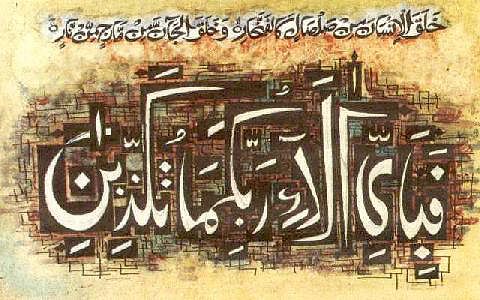 خلق الإنسان من صلصال كالفخار وخلق الجان من مارج من نار
فَبِأَيِّ آلَاءِ رَبِّكُمَا تُكَذِّبَانِ